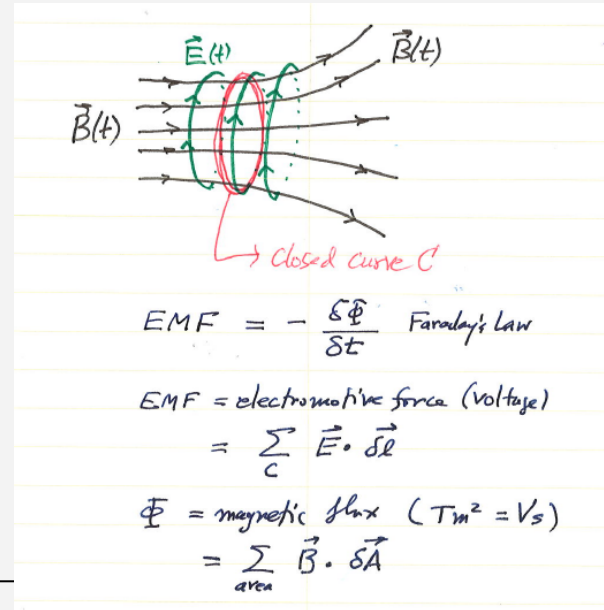 E⃗(t)
B⃗(t)
B⃗(t)
Closed curve C
EMF = - δΦ/δt Faraday's Law
EMF = electromotive force (voltage)
= Σ_C E⃗ · δl⃗
Φ = magnetic flux (Tm² = Vs)
= Σ_area B⃗ · δA⃗